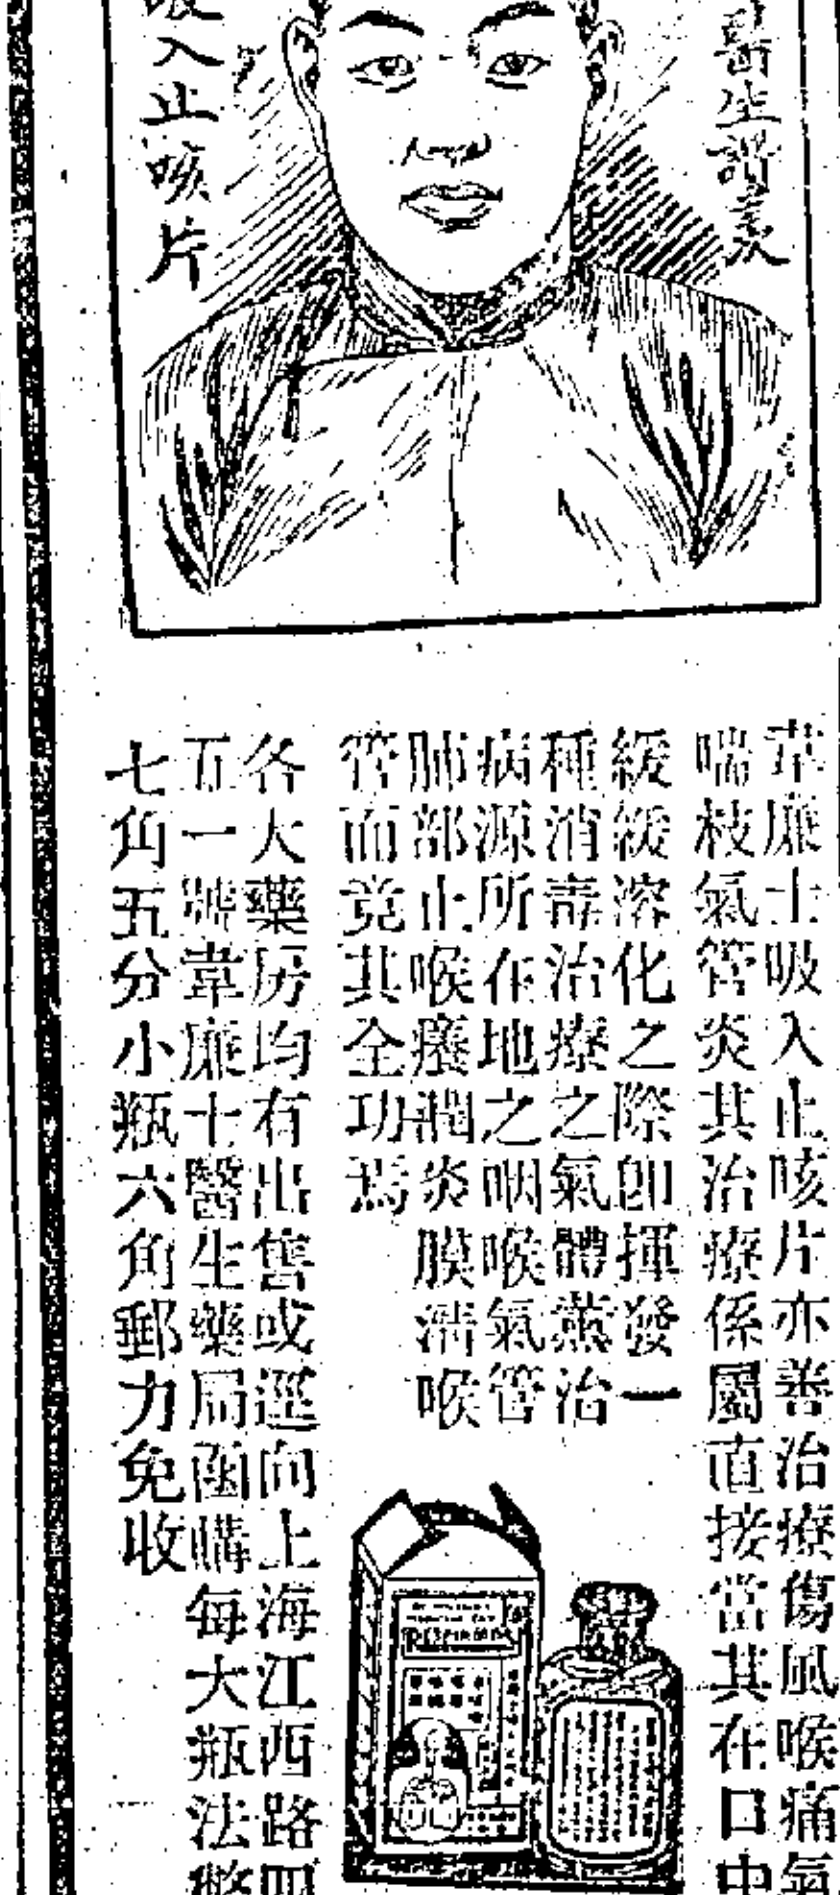 醫生讚美
吸入止咳片
韋廉士吸入止咳片亦善治療傷風喉痛氣
喘枝氣管炎其治療係屬直接當其在口中
緩緩溶化之際卽揮發一
種消毒治療之氣體薰治
病源所在地之咽喉氣管
肺部止喉癢潤炎膜淸喉
管而竟其全功焉
各大藥房均有出售或逕向上海江西路四
五一號韋廉士醫生藥局函購每大瓶法幣
七角五分小瓶六角郵力免收